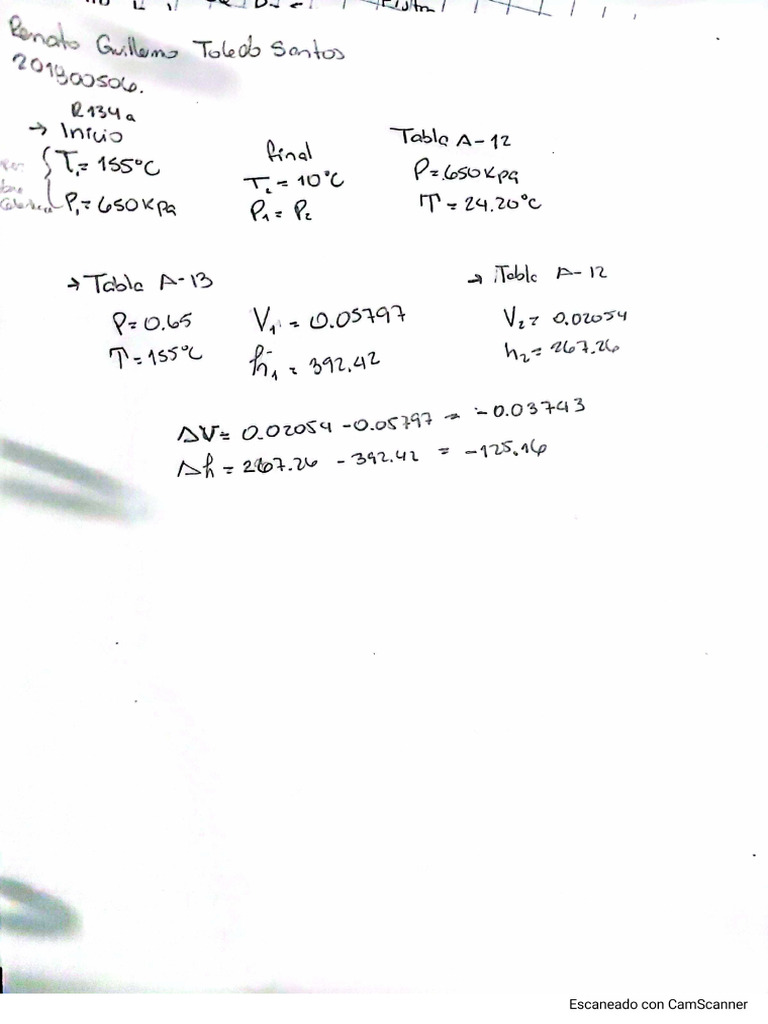 Renato Guillermo Toledo Santos
201900506.
R134a
→ Inicio
T₁= 155°C
P₁= 650Kpa
final
T₂ = 10°C
P₁ = P₂
Tabla A-12
P= 650Kpa
T = 24.20°C
→ Tabla A-13
P= 0.65
T= 155°C
V₁ = 0.05797
h₁ = 392.42
→ Tabla A-12
V₂= 0.02054
h₂= 267.26
ΔV= 0.02054 -0.05797 = -0.03743
Δh = 267.26 - 392.42 = -125.16
Escaneado con CamScanner